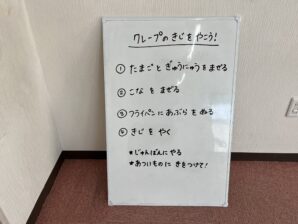 クレープの きじ を やこう!
① たまごと ぎゅうにゅうを まぜる
② こな を まぜる
③ フライパンに あぶら を ぬる
④ きじ を やく
★じゅんばんに やる
★あついものに きをつけて!